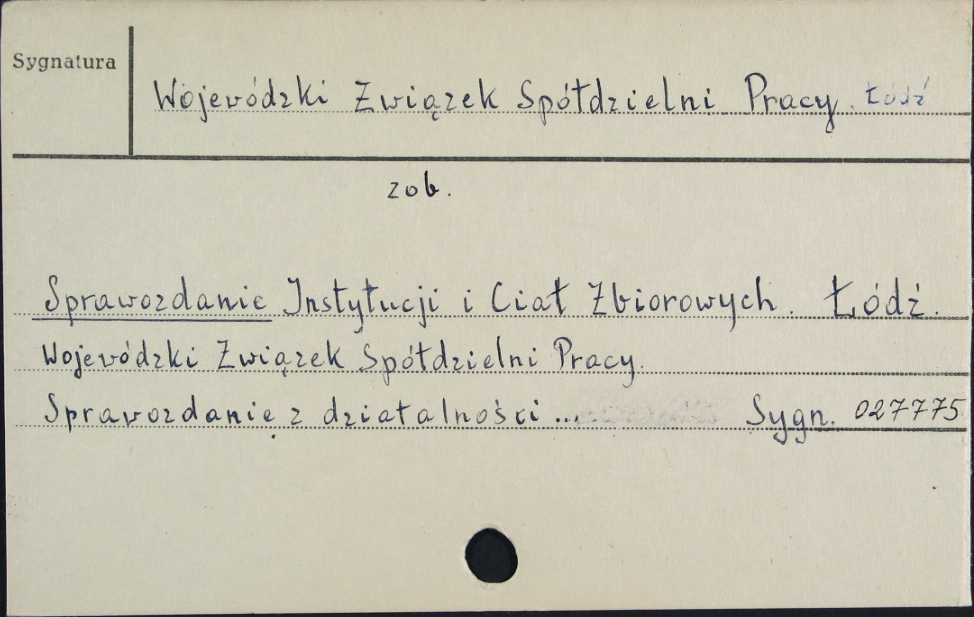 Sygnatura
Wojewódzki Związek Spółdzielni Pracy. Łódź
zob.
Sprawozdanie Instytucji i Ciał Zbiorowych. Łódź.
Wojewódzki Związek Spółdzielni Pracy.
Sprawozdanie z działalności ... Sygn. 027775